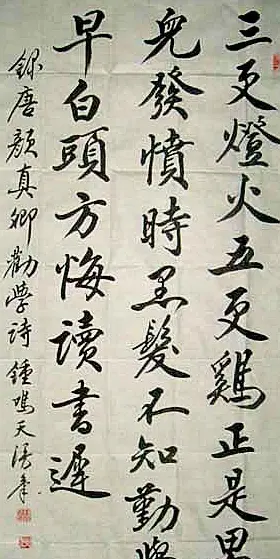 三更燈火五更鷄正是男
兒發憤時黑髮不知勤學
早白頭方悔讀書遲
錄唐顏真卿勸學詩 鍾鳴天